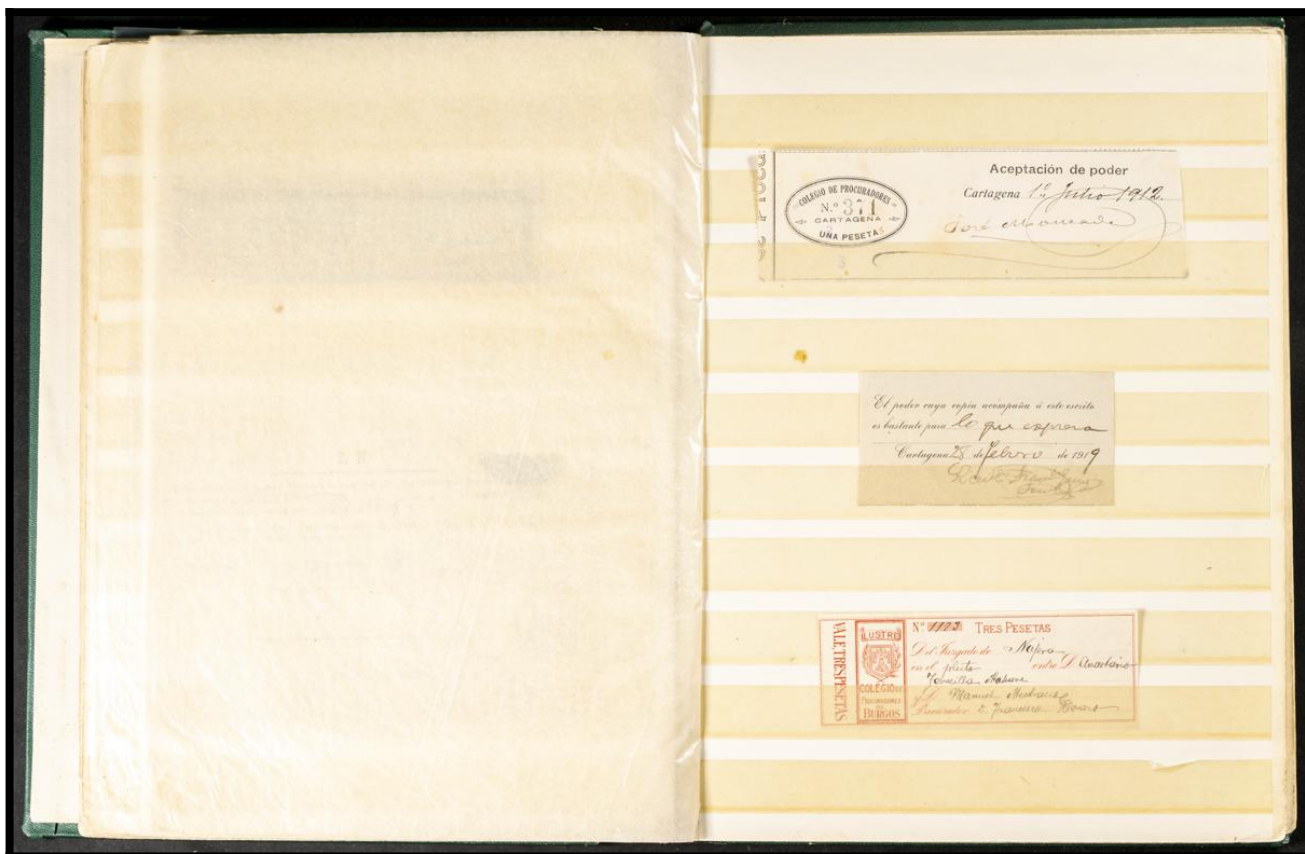 de Procu
Aceptación de poder
COLEGIO DE PROCURADORES
N.º 371
CARTAGENA
UNA PESETAS
Cartagena 1º Julio 1912.
José Moncada
El poder cuya copia acompaña á este escrito
es bastante para lo que expresa
Cartagena 28 de Febrero de 1919
VALE, TRES PESETAS
ILUSTRE
COLEGIO DE
PROCURADORES
DE
BURGOS
Nº 1173 TRES PESETAS
Del Juzgado de Nájera
en el pleito entre D. Anastasio
y D. Manuel
Procurador D. Francisco